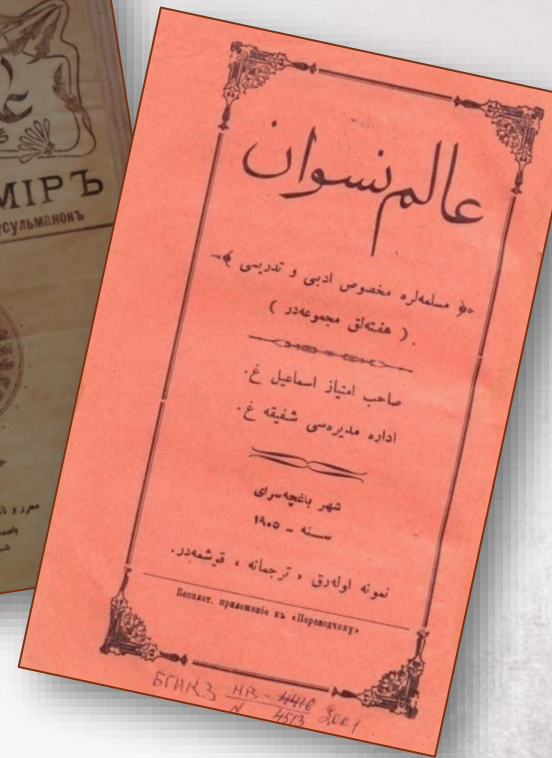 МІРЪ
عالم نسوان
مسلمه‌لره مخصوص ادبی و تدریسی
( هفته‌لق مجموعه‌در )
صاحب امتیاز اسماعیل غ.
اداره مدیره‌سی شفیقه غ.
شهر باغچه‌سرای
سنه – ۱۹۰۵
نمونه اوله‌رق « ترجمانه » قوشمه‌در.
Безплат. приложеніе къ «Переводчику»
БГИКЗ НВ - 4416
N 4513 2001